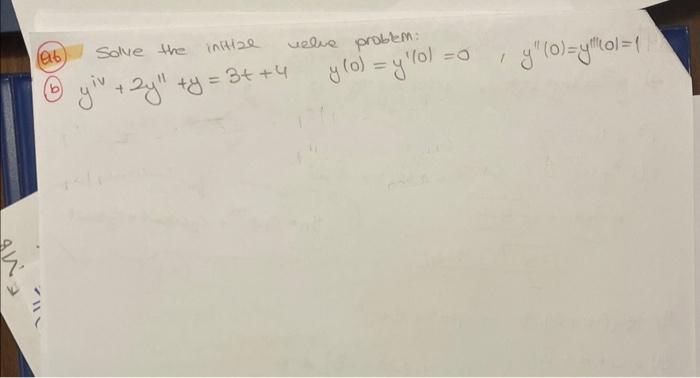 Q6 Solve the initial value problem:
(b) y^iv + 2y'' + y = 3t + 4 y(0) = y'(0) = 0 , y''(0) = y'''(0) = 1